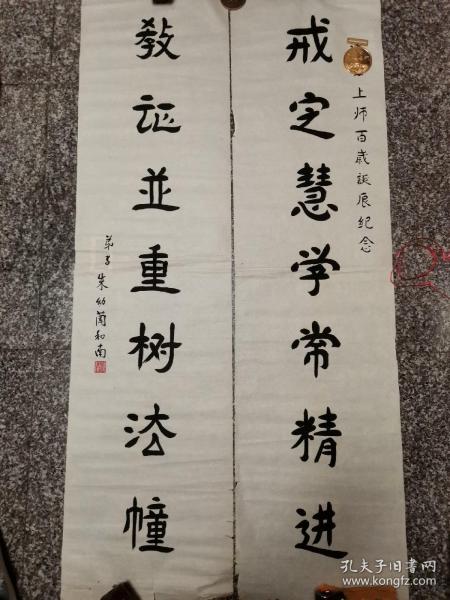 上师百岁誕辰纪念
戒定慧学常精进
教证並重树法幢
弟子朱幼蘭和南
孔夫子旧书网
www.kongfz.com